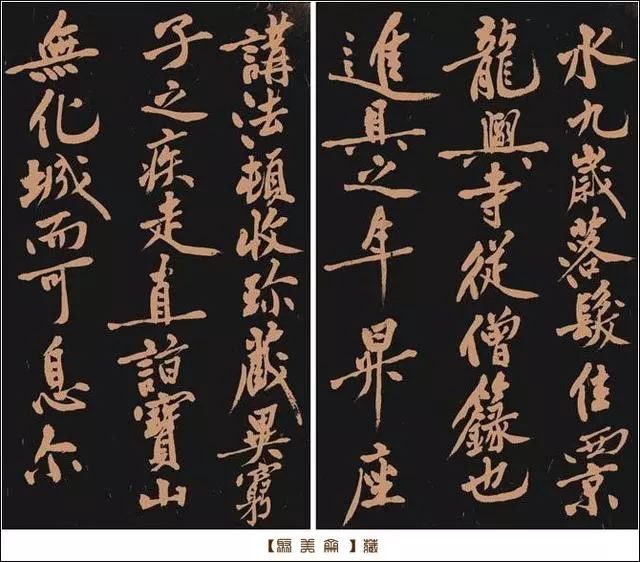 水九歲落髮住西京
龍興寺從僧籙也
進具之年昇座
講法頓收珎藏異窮
子之疾走直詣寶山
無化城而可息尔
【美】藏